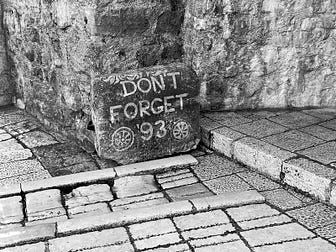 DON'T
FORGET
'93